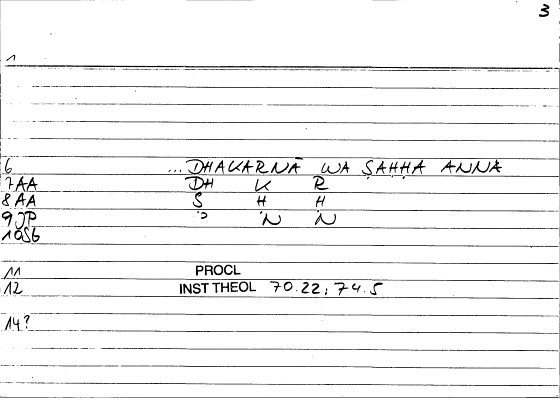 3
1
6 ... DHAKARNĀ WA ṢAḤḤA ANNA
7AA DH K R
8AA Ṣ Ḥ Ḥ
9JP ʾ N N
10SB
11 PROCL
12 INST THEOL 70.22; 74.5
14?